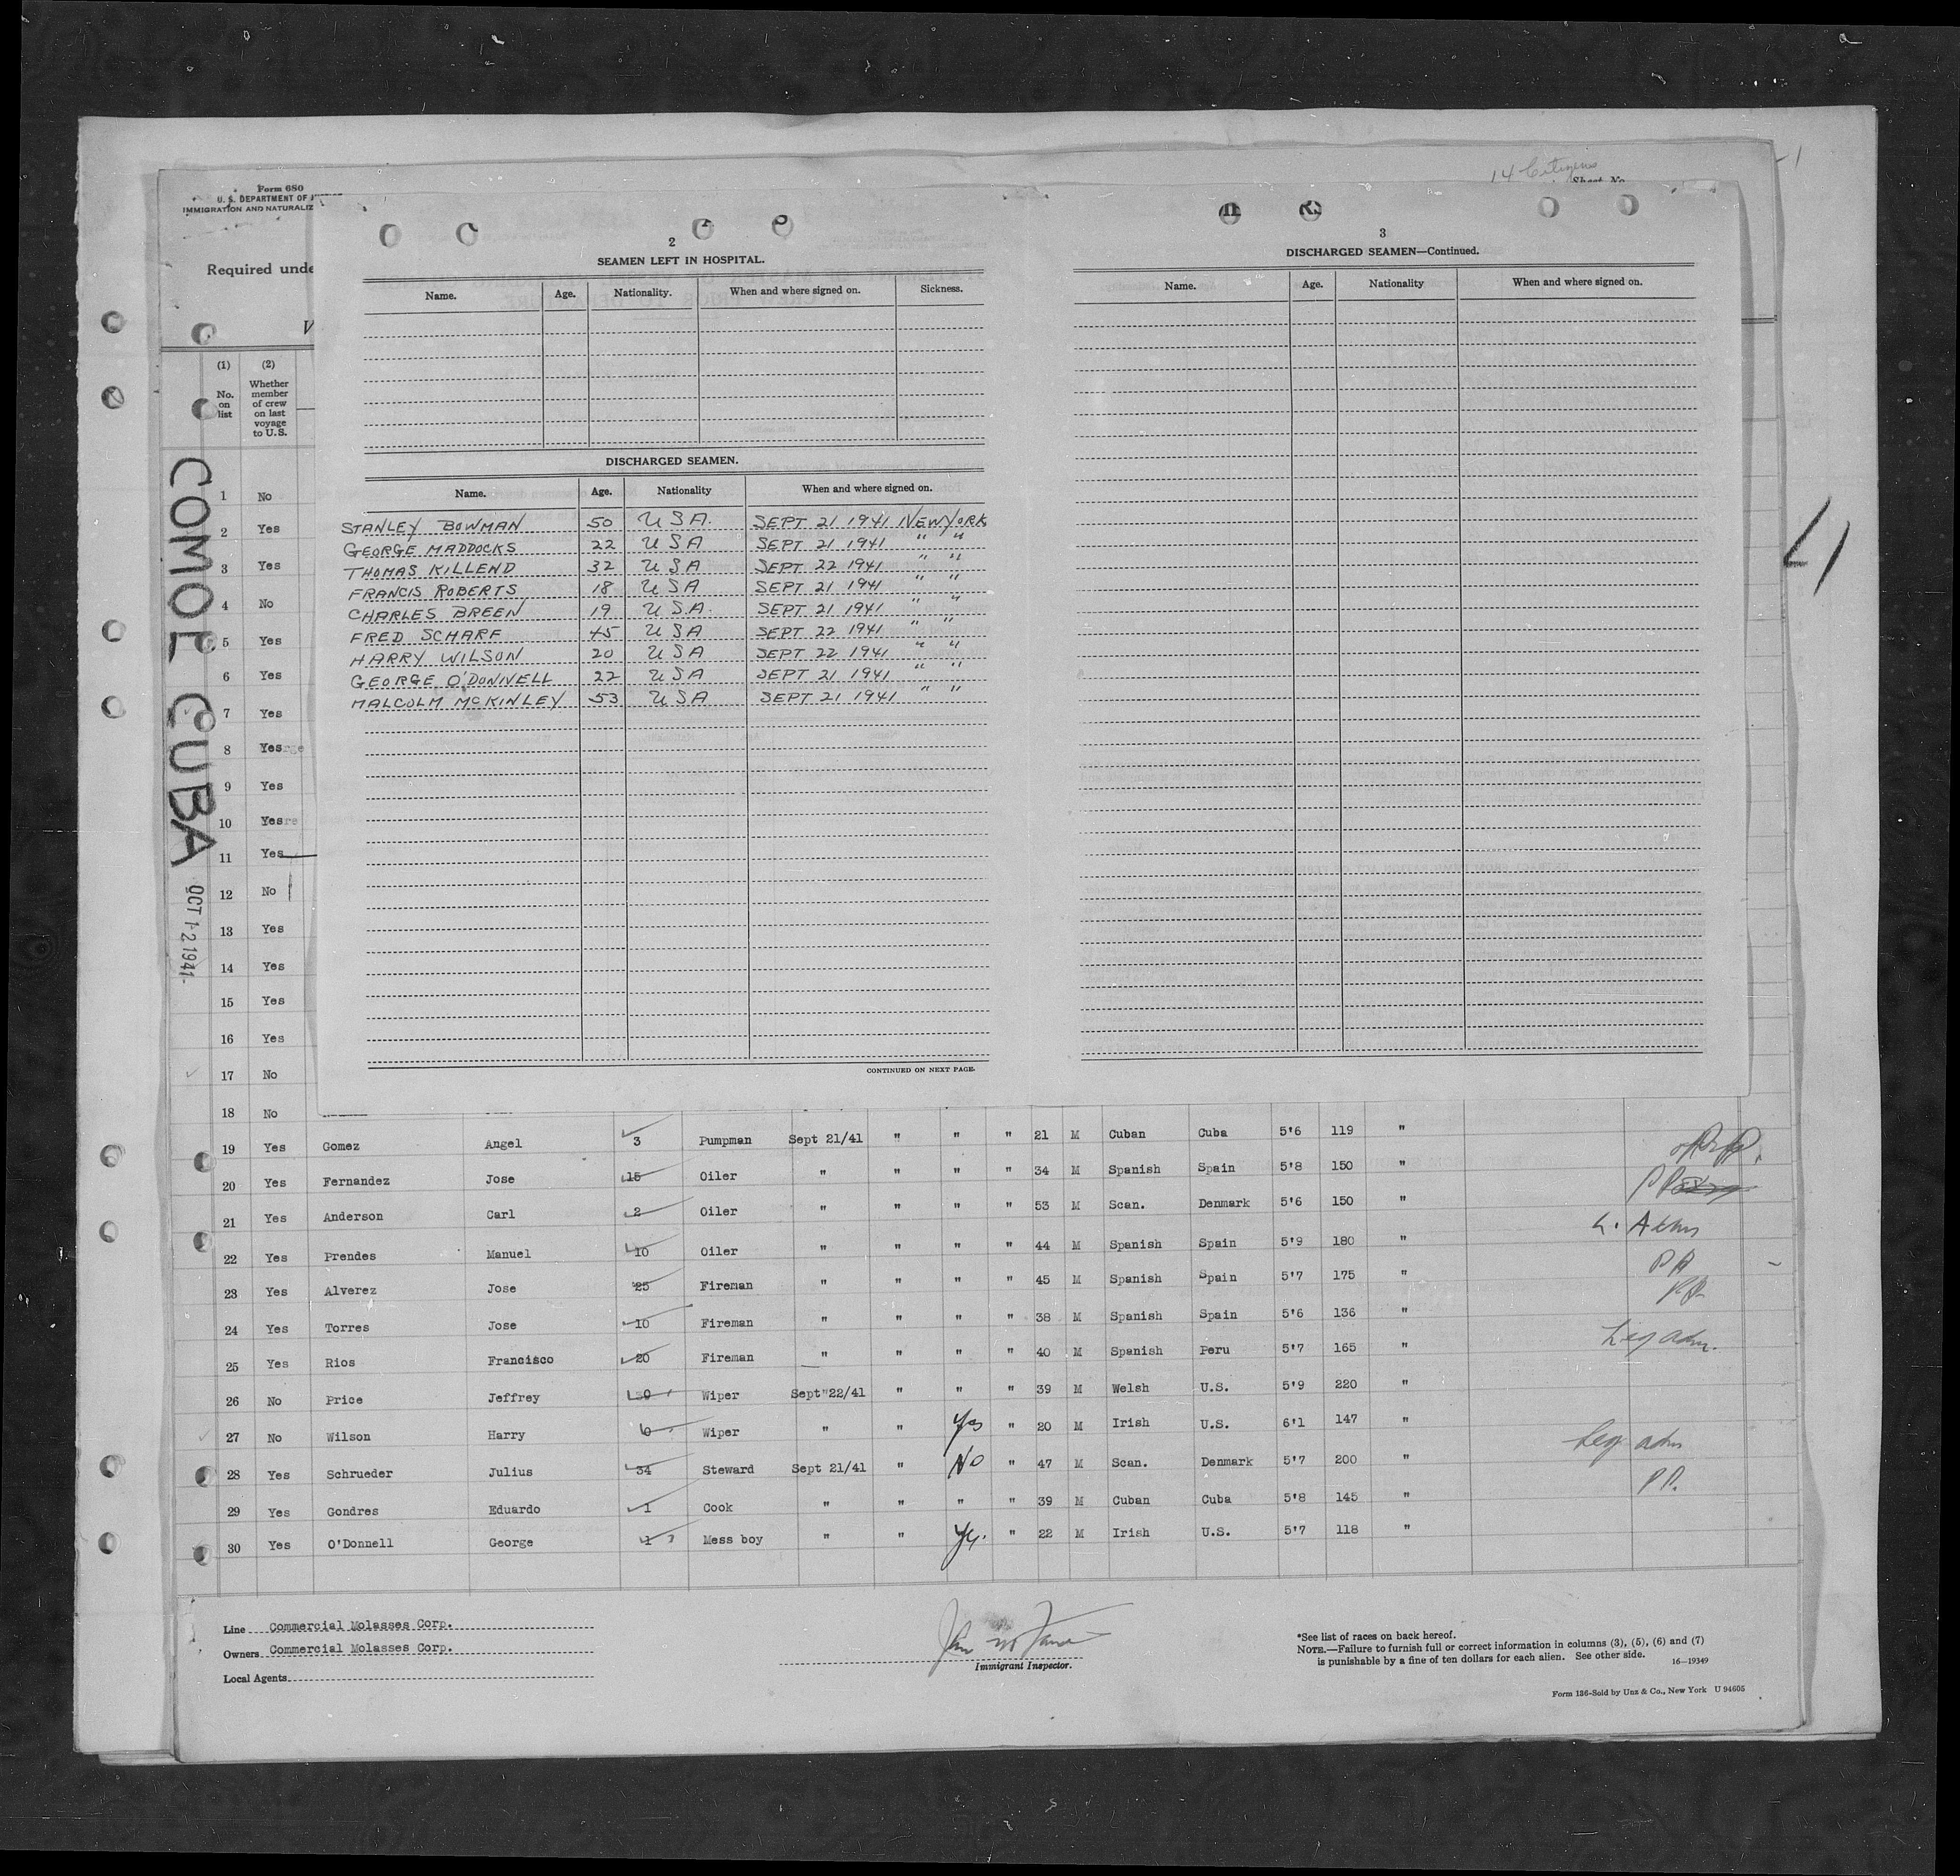 14 Citizens
Form 680
U. S. DEPARTMENT OF
IMMIGRATION AND
Required
Sheet No.
(1) (2)
No. on list
Whether member of crew on last voyage to U.S.
COMOL CUBA
OCT 12 1941
4
2
SEAMEN LEFT IN HOSPITAL.
Name. Age. Nationality. When and where signed on. Sickness.
DISCHARGED SEAMEN.
Name. Age. Nationality When and where signed on.
STANLEY BOWMAN 50 USA. SEPT 21 1941 NEW YORK
GEORGE MADDOCKS 22 USA SEPT 21 1941 " "
THOMAS KILLEND 32 USA SEPT 22 1941 " "
FRANCIS ROBERTS 18 USA SEPT 21 1941 " "
CHARLES BREEN 19 USA. SEPT 21 1941 " "
FRED SCHARF 45 USA SEPT 22 1941 " "
HARRY WILSON 20 USA SEPT 22 1941 " "
GEORGE O'DONNELL 22 USA SEPT 21 1941 " "
MALCOLM McKINLEY 53 USA SEPT 21 1941 " "
CONTINUED ON NEXT PAGE.
3
DISCHARGED SEAMEN—Continued.
Name. Age. Nationality When and where signed on.
1 No
2 Yes
3 Yes
4 No
5 Yes
6 Yes
7 Yes
8 Yes
9 Yes
10 Yes
11 Yes
12 No
13 Yes
14 Yes
15 Yes
16 Yes
17 No
18 No
19 Yes Gomez Angel 3 Pumpman Sept 21/41 " " " 21 M Cuban Cuba 5'6 119 "
20 Yes Fernandez Jose 15 Oiler " " " " 34 M Spanish Spain 5'8 150 "
21 Yes Anderson Carl 2 Oiler " " " " 53 M Scan. Denmark 5'6 150 "
22 Yes Prendes Manuel 10 Oiler " " " " 44 M Spanish Spain 5'9 180 "
23 Yes Alverez Jose 25 Fireman " " " " 45 M Spanish Spain 5'7 175 "
24 Yes Torres Jose 10 Fireman " " " " 38 M Spanish Spain 5'6 136 "
25 Yes Rios Francisco 20 Fireman " " " " 40 M Spanish Peru 5'7 165 " Leg adm.
26 No Price Jeffrey Wiper Sept 22/41 " " " 39 M Welsh U.S. 5'9 220 "
27 No Wilson Harry 6 Wiper " " Yes " 20 M Irish U.S. 6'1 147 "
28 Yes Schrueder Julius 34 Steward Sept 21/41 " No " 47 M Scan. Denmark 5'7 200 " Leg adm
29 Yes Gondres Eduardo 1 Cook " " " " 39 M Cuban Cuba 5'8 145 " P.P.
30 Yes O'Donnell George 1 Mess boy " " Yes. " 22 M Irish U.S. 5'7 118 "
Line Commercial Molasses Corp.
Owners Commercial Molasses Corp.
Local Agents
Immigrant Inspector.
*See list of races on back hereof.
NOTE.—Failure to furnish full or correct information in columns (3), (5), (6) and (7)
is punishable by a fine of ten dollars for each alien. See other side.
16—19349
Form 136-Sold by Unz & Co., New York U 94605